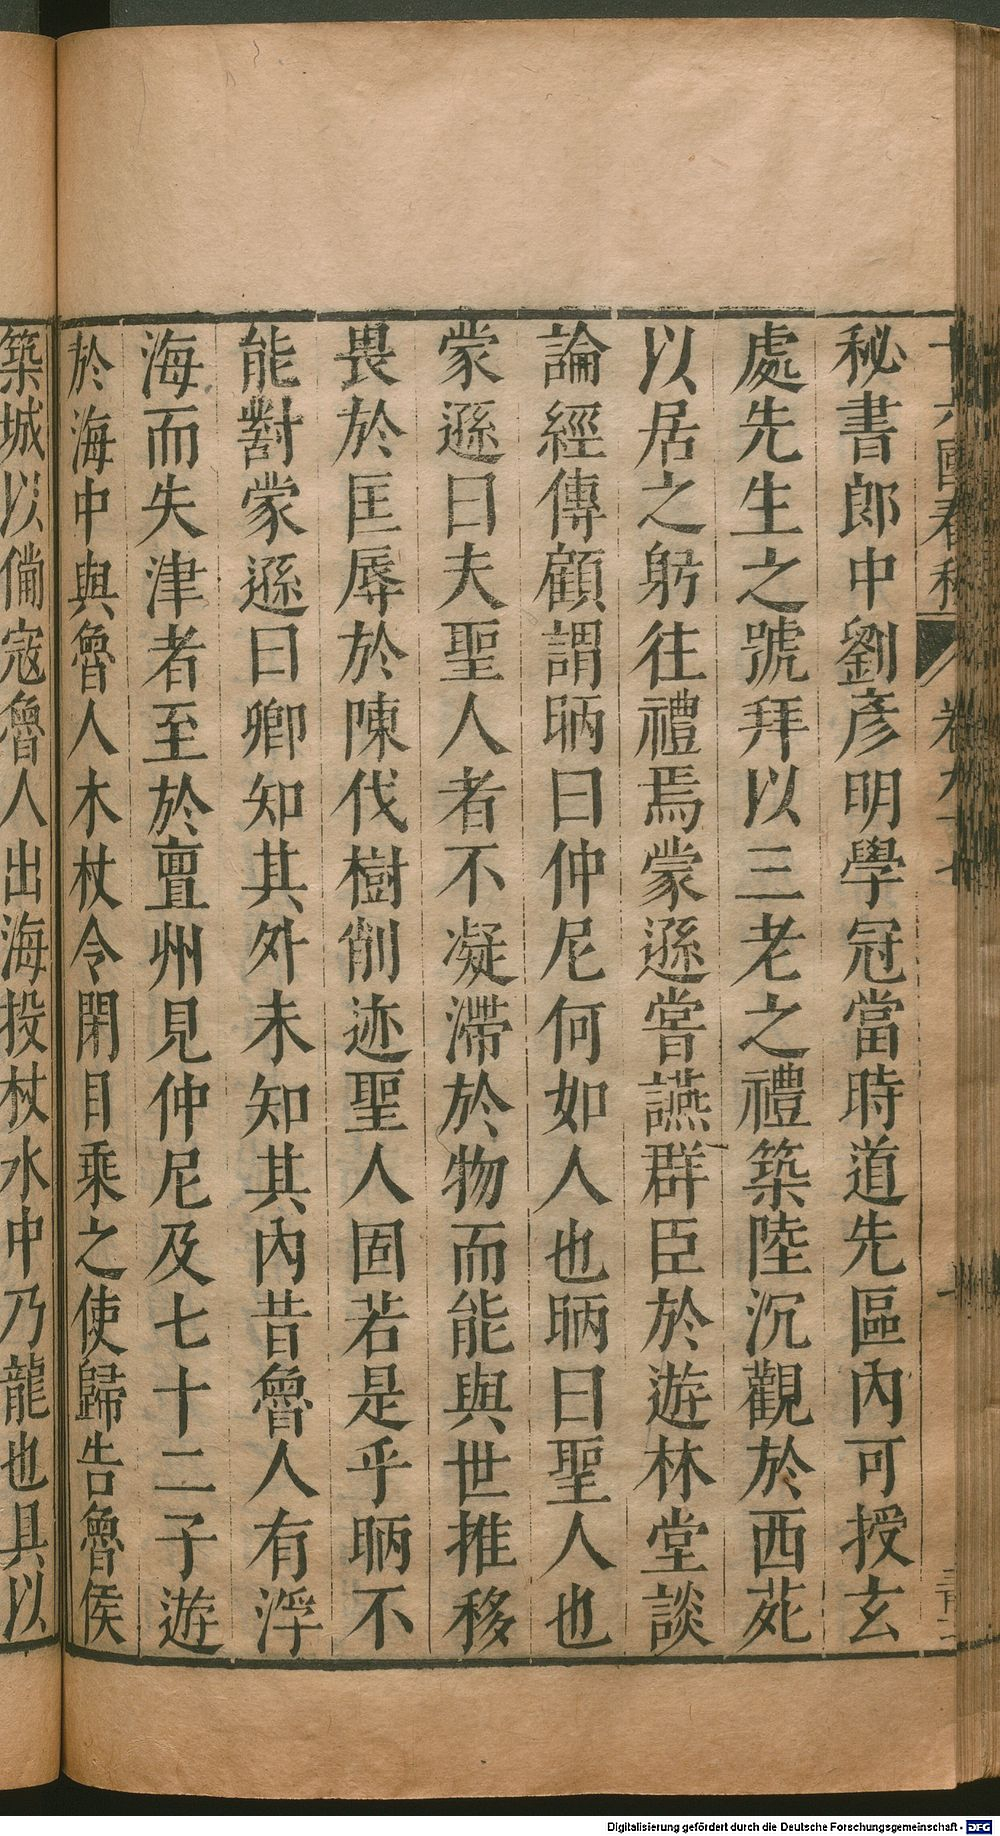 秘書郎中劉彥明學冠當時道先區內可授玄
處先生之號拜以三老之禮築陸沉觀於西苑
以居之躬往禮焉蒙遜嘗讌群臣於遊林堂談
論經傳顧謂昞曰仲尼何如人也昞曰聖人也
蒙遜曰夫聖人者不凝滯於物而能與世推移
畏於匡辱於陳伐樹削迹聖人固若是乎昞不
能對蒙遜曰卿知其外未知其內昔魯人有浮
海而失津者至於亶州見仲尼及七十二子遊
於海中與魯人木杖令閉目乘之使歸告魯侯
築城以備寇魯人出海投杖水中乃龍也具以
Digitalisierung gefördert durch die Deutsche Forschungsgemeinschaft - DFG